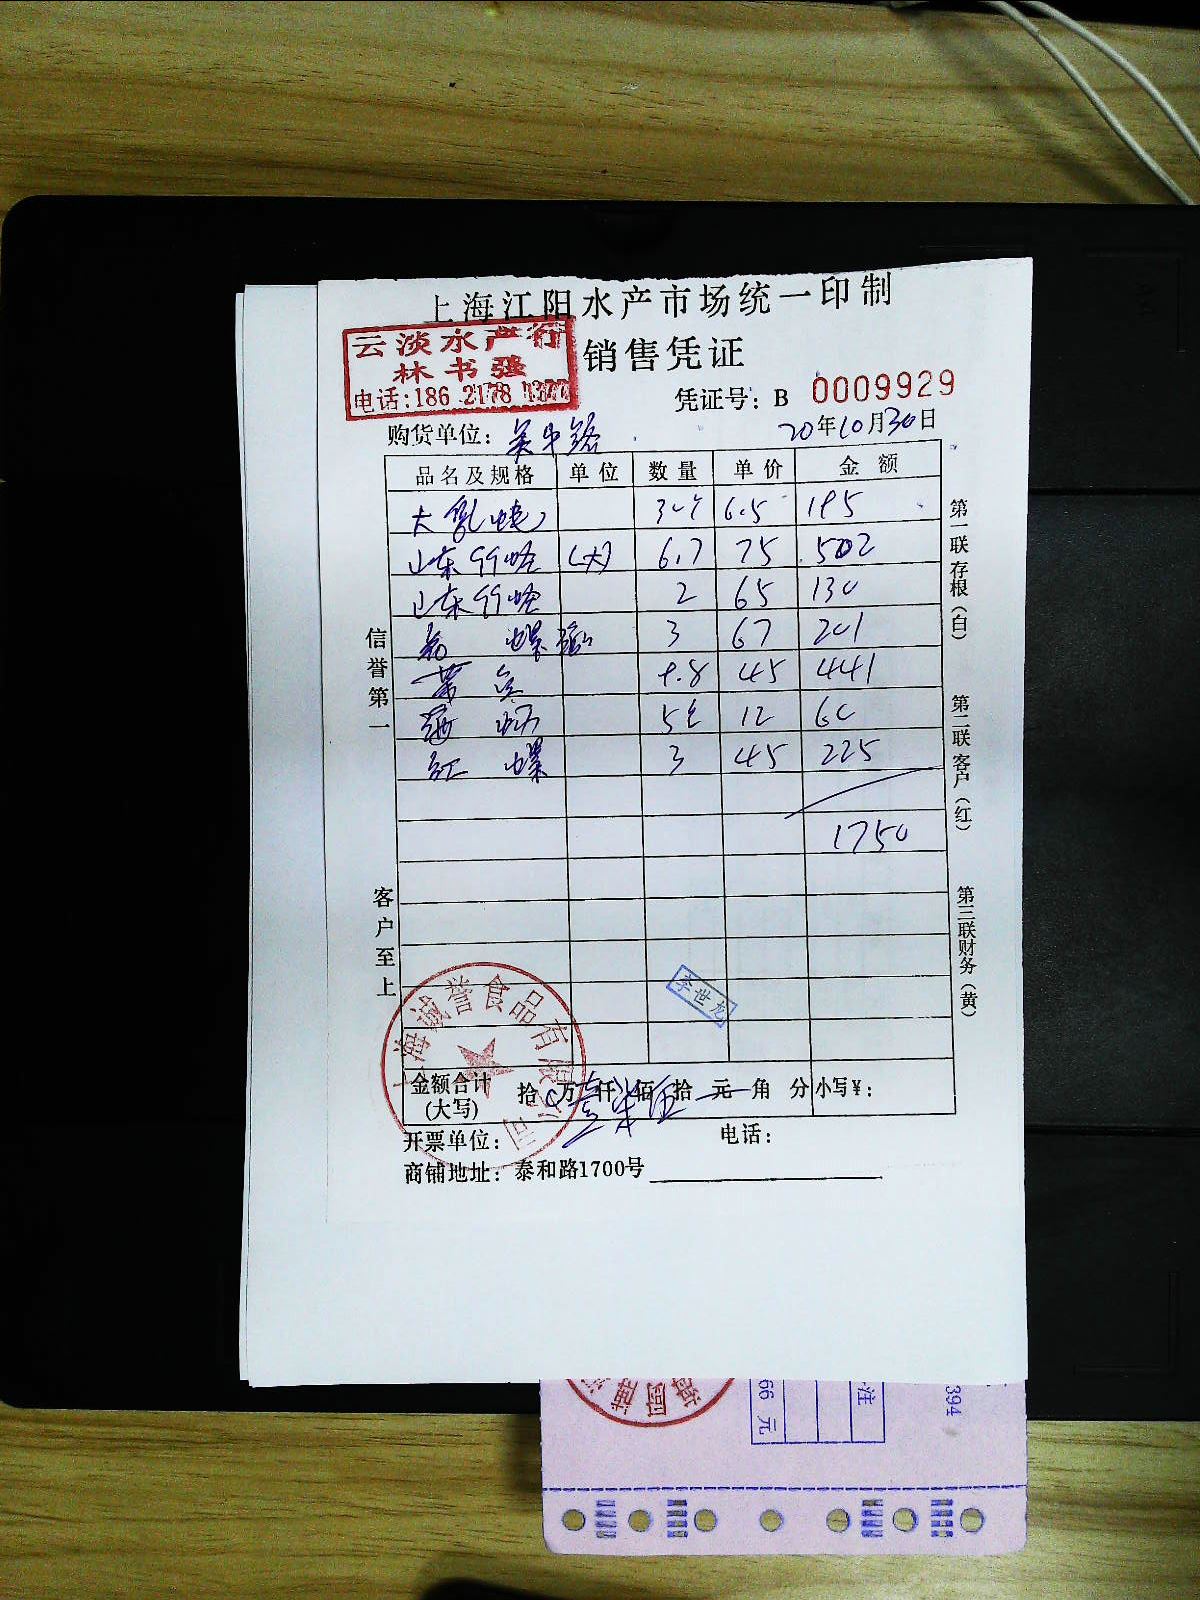 上海江阳水产市场统一印制
云淡水产行
林书强
电话:186 2178
销售凭证
凭证号: B 0009929
购货单位: 吴中路 20年10月30日
品名及规格 单位 数量 单价 金额
大 6.5 195
山东 (大) 6.7 75 502
山东 2 65 130
螺 3 67 201
9.8 45 441
12 60
红螺 3 45 225
1750
信誉第一
客户至上
第一联存根(白)
第二联客户(红)
第三联财务(黄)
李世龙
上海诚誉食品有限公司
金额合计(大写) 拾 万 壹 仟 柒 佰 伍 拾 元 角 分 小写¥:
开票单位: 电话:
商铺地址: 泰和路1700号
66 元
注
394